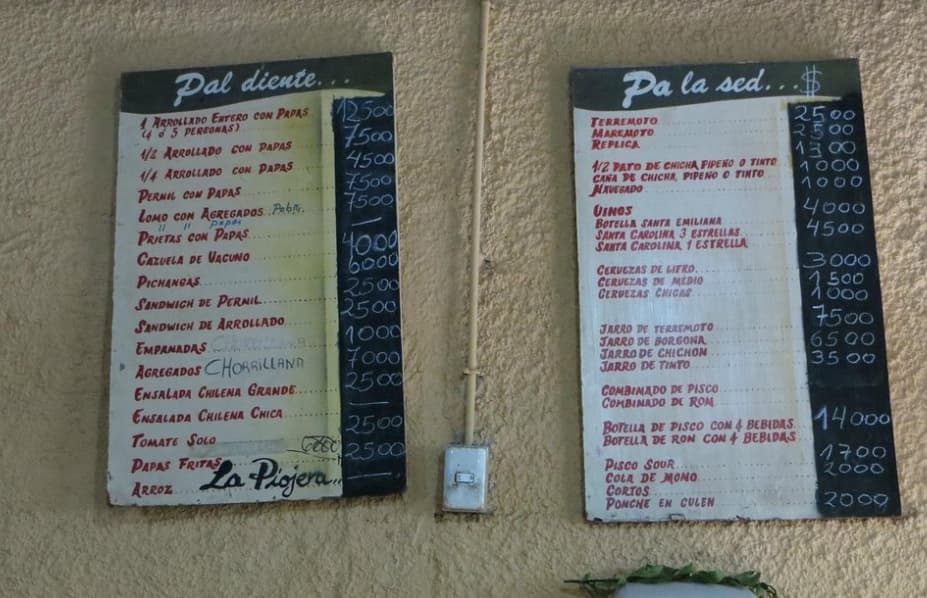 Pal diente...
1 ARROLLADO ENTERO CON PAPAS 12500
(4 ó 5 PERSONAS)
1/2 ARROLLADO CON PAPAS 7500
1/4 ARROLLADO CON PAPAS 4500
PERNIL CON PAPAS 7500
LOMO CON AGREGADOS 7500
" " papas
PRIETAS CON PAPAS —
CAZUELA DE VACUNO 4000
PICHANGAS 6000
SANDWICH DE PERNIL 2500
SANDWICH DE ARROLLADO 2500
EMPANADAS 1000
AGREGADOS CHORRILLANA 7000
ENSALADA CHILENA GRANDE 2500
ENSALADA CHILENA CHICA —
TOMATE SOLO 2500
PAPAS FRITAS 2500
ARROZ —
La Piojera..
Pa la sed... $
TERREMOTO 2500
MAREMOTO 2500
REPLICA 1300
1/2 PATO DE CHICHA, PIPEÑO O TINTO 1000
CAÑA DE CHICHA, PIPEÑO O TINTO 1000
NAVEGADO
VINOS
BOTELLA SANTA EMILIANA 4000
SANTA CAROLINA 3 ESTRELLAS 4500
SANTA CAROLINA 1 ESTRELLA
CERVEZAS DE LITRO 3000
CERVEZAS DE MEDIO 1500
CERVEZAS CHICAS 1000
JARRO DE TERREMOTO 7500
JARRO DE BORGOÑA 6500
JARRO DE CHICHON 3500
JARRO DE TINTO
COMBINADO DE PISCO
COMBINADO DE RON
BOTELLA DE PISCO CON 4 BEBIDAS 14000
BOTELLA DE RON CON 4 BEBIDAS
PISCO SOUR 1700
COLA DE MONO 2000
CORTOS
PONCHE EN CULEN 2000